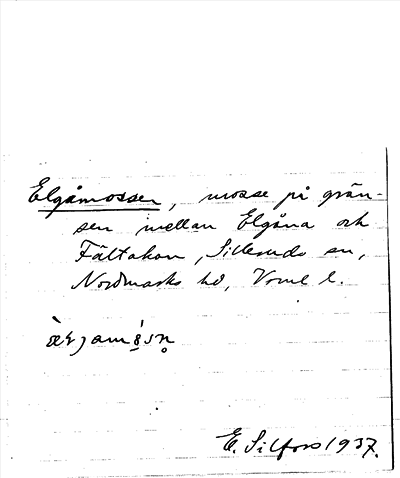 Elgåmossen, mosse på grän-
sen mellan Elgåna och
Fältakon, Silleruds sn,
Nordmarks hd, Verml l.
E. Silfors 1937.